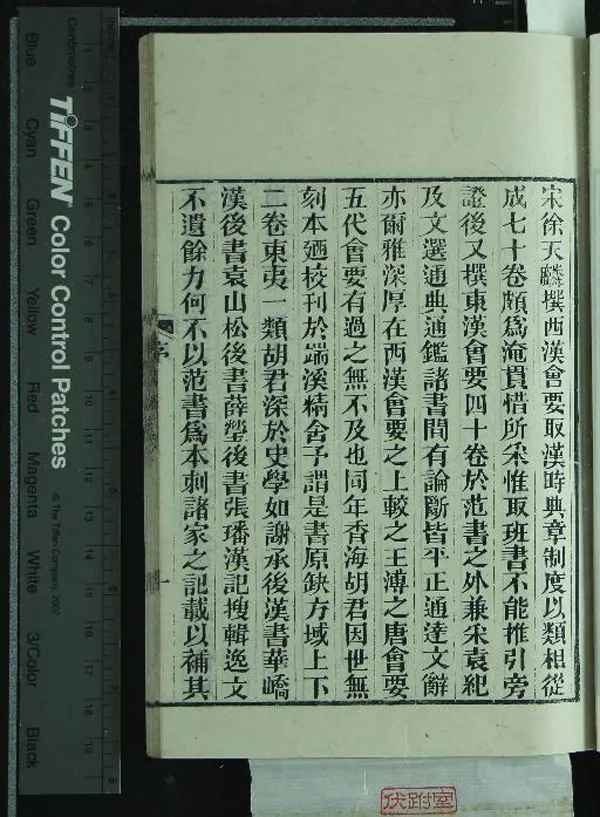 宋徐天麟撰西漢會要取漢時典章制度以類相從
成七十卷頗爲淹貫惜所采惟取班書不能推引旁
證後又撰東漢會要四十卷於范書之外兼采袁紀
及文選通典通鑑諸書間有論斷皆平正通達文辭
亦爾雅深厚在西漢會要之上較之王溥之唐會要
五代會要有過之無不及也同年香海胡君因世無
刻本廼校刊於端溪精舍予謂是書原缺方域上下
二卷東夷一類胡君深於史學如謝承後漢書華嶠
漢後書袁山松後書薛瑩後書張璠漢記搜輯逸文
不遺餘力何不以范書爲本刺諸家之記載以補其
序
一
伏跗室
Centimetres
TIFFEN Color Control Patches
© The Tiffen Company, 2007
Blue Cyan Green Yellow Red Magenta White 3/Color Black